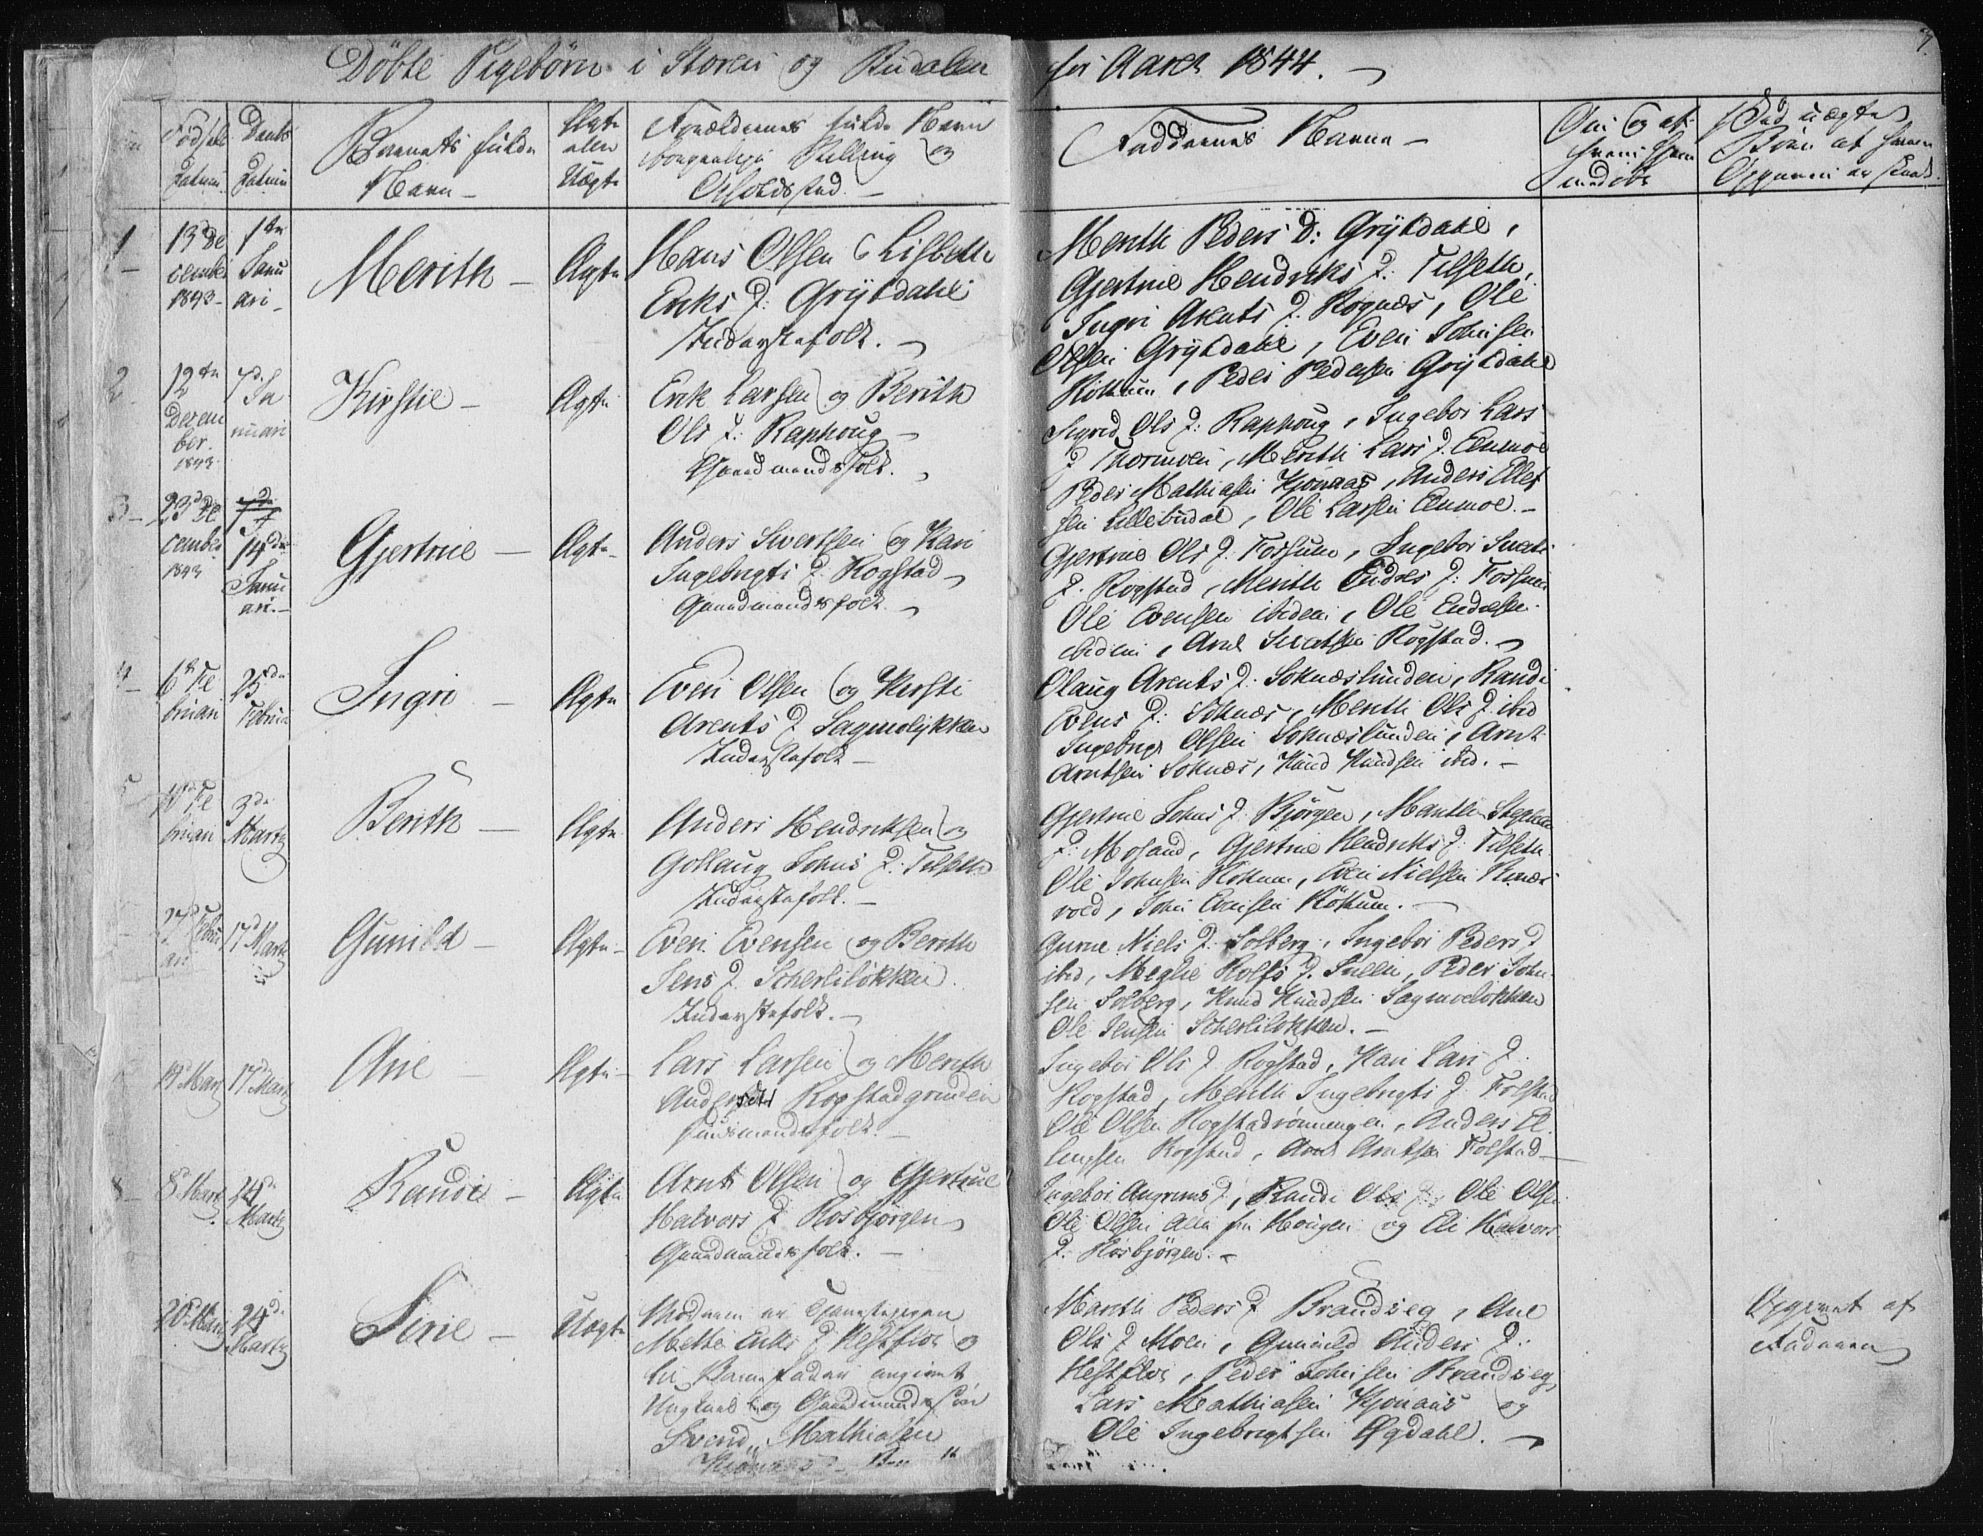 Döbte Pigebørn i Støren og Budalen for Aaret 1844.
7.
Fødsels Datum
Daabs Datum
Barnets fulde Navn
Ægte eller Uægte
Forældrenes fulde Navn
borgerlige Stilling og
Opholdssted.
Faddernes Navne
Om og af hvem hjemmedöbt
Ved uægte Börn af hvem Opgaven er skeet.
1
13de December 1843
1ste Januari
Merith
Ægte
Hans Olsen & Lisbeth
Eriks D: Grÿtdahl
Inderstefolk.
Merith Peders D: Grÿtdahl,
Gjertrue Hendriks D: Tilseth,
Ingri Arents D: Rognæs, Ole
Olsen Grÿtdahl, Even Johnsen
Röttum, Peder Pedersen Grÿtdahl
2
12te December 1843
7de Januari
Kirstie
Ægte
Erik Larsen og Berith
Ols D: Raphoug
Gaardmandsfolk.
Sigrid Ols D: Raphoug, Ingebor Lars
D Thormoen, Merith Lars D Enmoe
Peder Mathiasen Kjønaas, Anders Ellef
sen Lillebudal, Ole Larsen Enmoe.
3
23de December 1843
14de Januari
Gjertrue
Ægte
Anders Sivertsen og Kari
Ingebrigts D: Rogstad
Gaardmandsfolk
Gjertrue Ols D: Forsum, Ingebor Siverts
D. Rogstad, Merith Endres D: Forsum
Ole Evensen ibidem, Ole Endresen
ibidem, Arnt Sivertsen Rogstad.
4
6te Februari
25de Februar
Ingri
Ægte
Even Olsen og Kirsti
Arents D Sagmolÿkken
Inderstefolk
Olaug Arents D. Soknæslunden, Randi
Evens D: Soknæs, Merith Ols D ibid
Ingebrigt Olsen Soknæslunden, Arnt
Arntsen Soknæs, Knud Knudsen ibid.
5
10de Februari
3de Martz
Berith
Ægte
Anders Hendriksen og
Gollaug Johns D: Tilseth
Inderstefolk.
Gjertrue Johns D: Bjørgen, Marith Stephens
D: Mosand, Gjertrue Hendriks D: Tilseth
Ole Johnsen Röttum, Even Nielsen Kornes
vold, John Evensen Röttum.
27de Februari
17de Martz
Gunild
Ægte
Even Evensen og Berith
Jens D. Scherlilökken
Inderstefolk.
Gurue Niels D: Solberg, Ingebor Peders D
ibid, Meglie Rolfs D. Snelli, Peder John
sen Solberg, Knud Knudsen Sagmoelökken
Ole Jensen Scherlilökken.
17de Martz
Ane
Ægte
Lars Larsen og Merith
Andersdtr Rogstadgrinden
Huusmandsfolk.
Ingebor Ols D Rogstad, Kari Lars D.
Rogstad, Merith Ingebrigts D. Folstad
Ole Olsen Rogstadrönningen, Anders El
lingsen Rogstad, Arnt Arntsen Folstad
8
8de Martz
24de Martz
Randi
Ægte
Arnt Olsen og Gjertrue
Halvors D Rosbjörgen
Gaardmandsfolk.
Ingebor Angrims D, Randi Ols D, Ole Olsen
Ole Olsen alle fra Hougen og Eli Halvors
D: Rosbjörgen.
20de Martz
24de Martz
Sirie
Uægte
Moderen er Tjenestepigen
Mette Eriks D Hestflor og
til Barnefader angivet
Ungkarl og Gaardmandssön
Svend Mathiasen
Kjønaas
Marith Peders D Brandseg, Ane
Ols D Moen, Gunnild Anders D:
Hestflor, Peder Johnsen Brandseg,
Lars Mathiasen Kjonaas og
Ole Ingebrigtsen Ösgdahl.
Opgivet af
Faderen